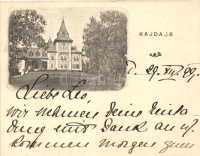 KAJDACS
29. VIII 99.
Liebe Leo,
wir nehmen deine Einla-
dung mit Dank an u.
kommen morgen zum